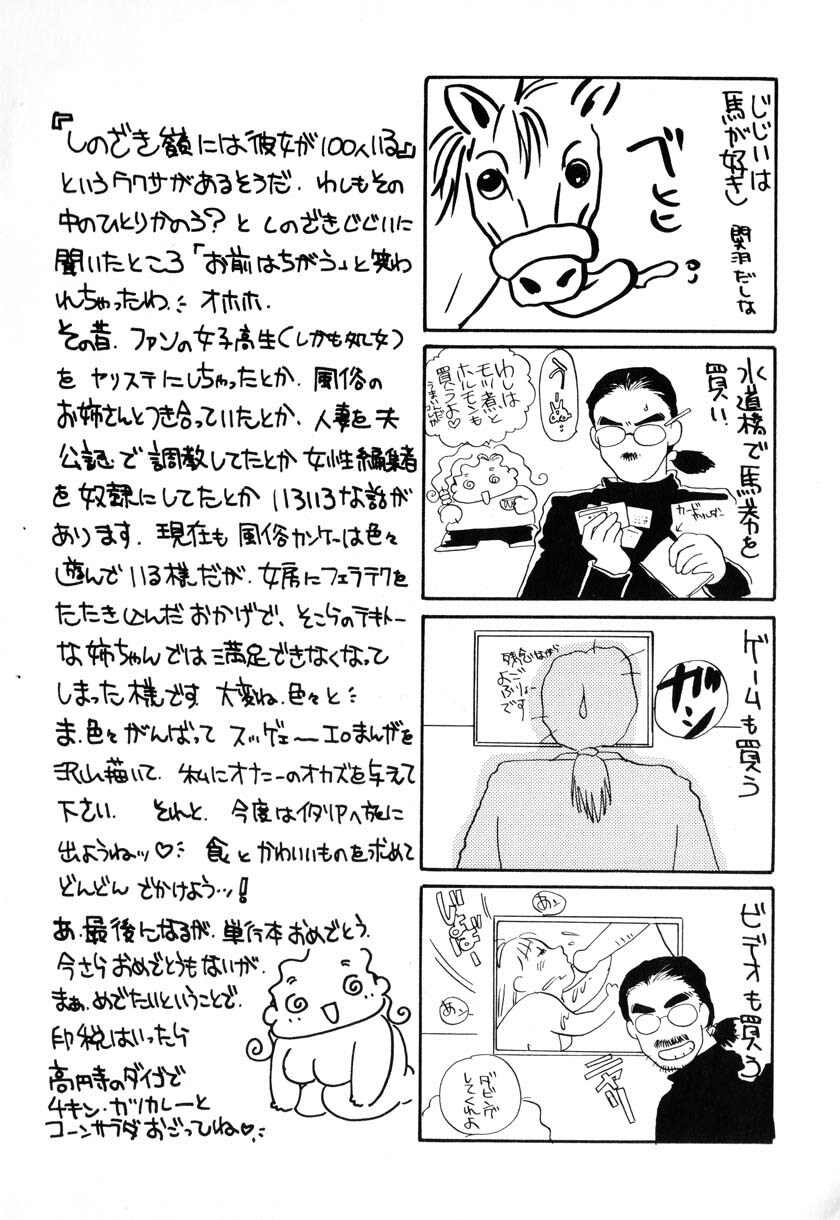 じじいは
馬が好き
関羽だしな
べ
ヒヒ
水道橋で馬券を
買い
カードホルダー
うー
わしは
モツ煮と
ホルモンも
買うよ♡
うまいのだが
ゲームも買う
ガーン
残念ながら
よご
ふりょー
です
ビデオも買う
あっ
じゅぽ
あっ
ニヤリ
ダビング
してくれよ
『しのざき嶺には彼女が100人いる』
というウワサがあるそうだ。わしもその
中のひとりかのう?と しのざきじじいに
聞いたところ「お前はちがう」と笑わ
れちゃったわ。オホホ.
その昔.ファンの女子高生(しかも処女)
を ヤリステにしちゃったとか.風俗の
お姉さんとつき合っていたとか.人妻を夫
公認で調教してたとか 女性編集者
を奴隷にしてたとか いろいろな話が
あります.現在も 風俗カンケーは色々
遊んでいる様だが.女房にフェラテクを
たたき込んだおかげで、そこらのテキトー
な姉ちゃんでは満足できなくなって
しまった様です 大変ね.色々と
ま.色々がんばって スッゲェ〜エロまんがを
沢山描いて.私にオナニーのオカズを与えて
下さい. それと.今度はイタリアへ旅に
出ようねッ♡ 食とかわいいものを求めて
どんどん でかけよう…!
あ.最後になるが.単行本おめでとう.
今さらおめでとうもないが.
まぁ.めでたいということで.
印税はいったら
高円寺のダイゴで
チキン・カツカレーと
コーンサラダおごってね♡